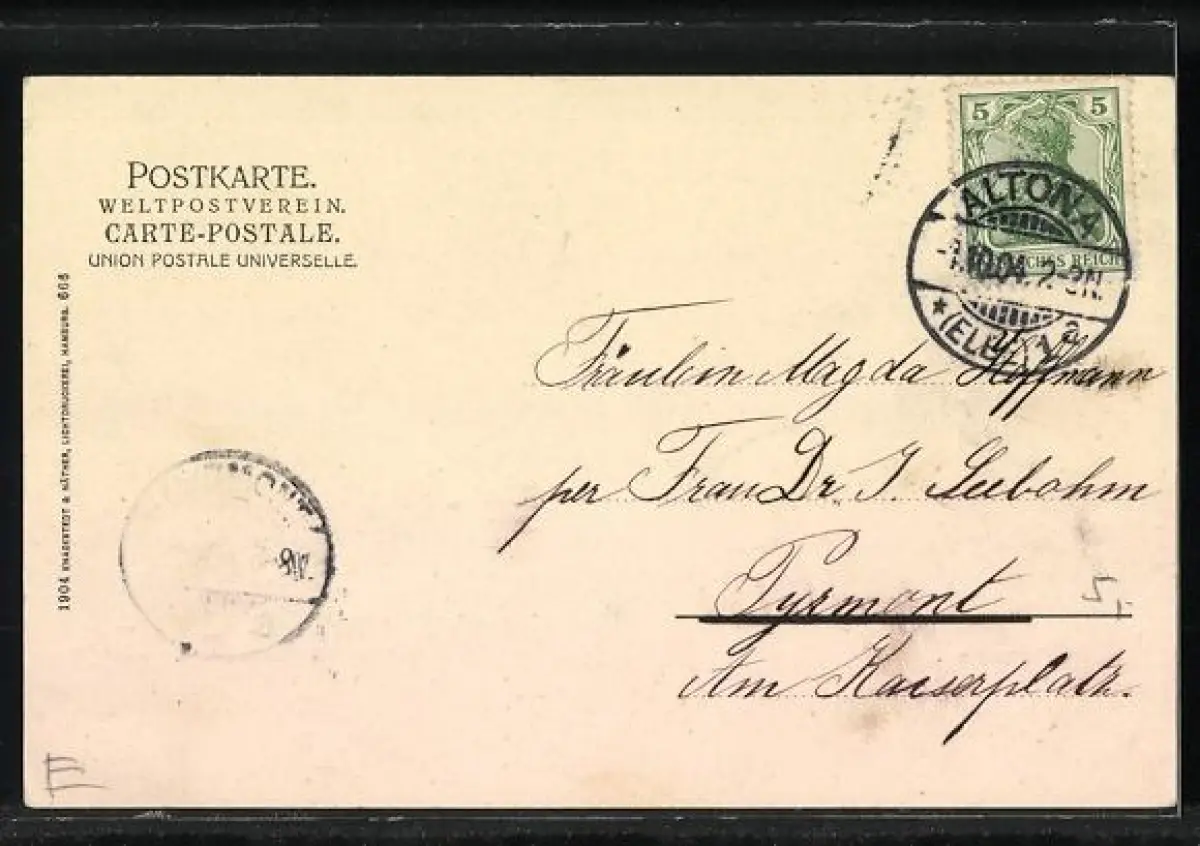 POSTKARTE.
WELTPOSTVEREIN.
CARTE-POSTALE.
UNION POSTALE UNIVERSELLE.
1904 KNACKSTEDT & NÄTHER, LICHTDRUCKEREI, HAMBURG. 666
5 5
ALTONA
-1.10.04. 2-3N.
* (ELBE) 1 a
Fräulein Magda Hoffmann
per Frau Dr. J. Seebohm
Pyrmont
Am Kaiserplatz.
5
E